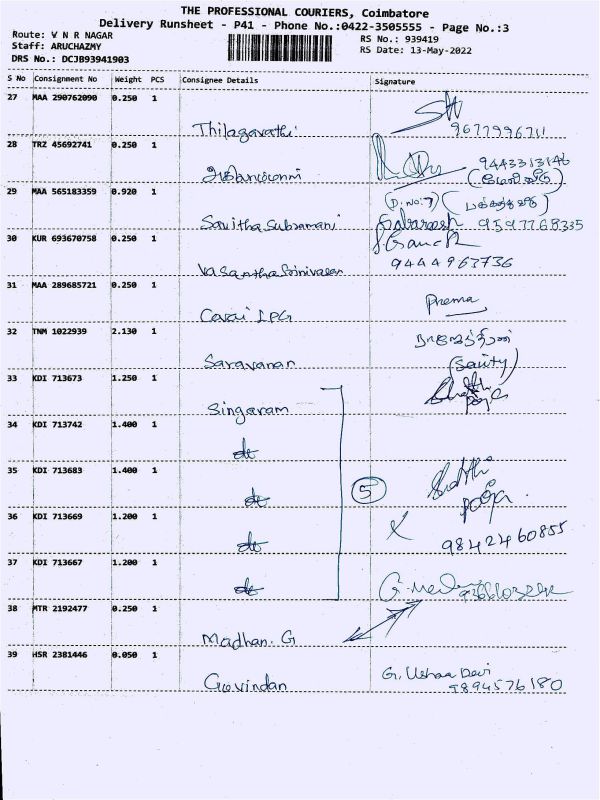 THE PROFESSIONAL COURIERS, Coimbatore
Delivery Runsheet - P41 - Phone No.:0422-3505555 - Page No.:3
Route: V N R NAGAR
RS No.: 939419
Staff: ARUCHAZMY
RS Date: 13-May-2022
DRS No.: DCJB93941903
S No Consignment No Weight PCS Consignee Details Signature
27 MAA 290762090 0.250 1
Thilagavathi 9677996711
28 TRZ 45692741 0.250 1
9443313146
29 MAA 565183359 0.920 1
(D.No:7)
Savitha Subramani Sabareesh 9597768335
30 KUR 693670758 0.250 1
Vasantha Srinivasan 9444963736
31 MAA 289685721 0.250 1
Prema
Covai LPG
32 TNM 1022939 2.130 1
Saravanan (Security)
33 KDI 713673 1.250 1
Singaram
34 KDI 713742 1.400 1
do
35 KDI 713683 1.400 1
5
do
36 KDI 713669 1.200 1
do 9842460855
37 KDI 713667 1.200 1
do
38 MTR 2192477 0.250 1
Madhan. G
39 HSR 2381446 0.050 1
G. Ushaa Devi
Govindan 9894576180